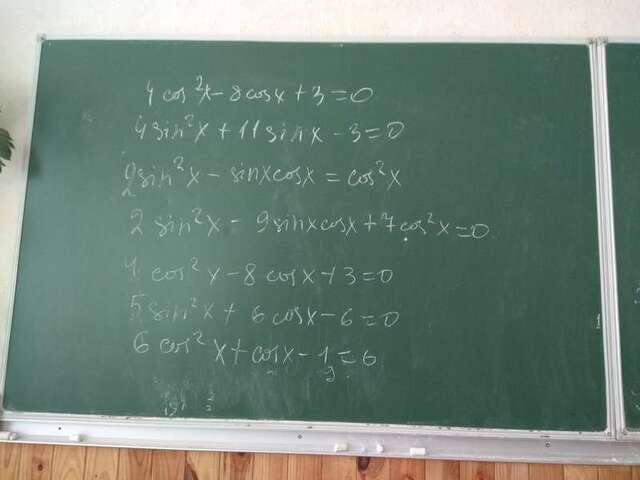 4 cos²x - 8cosx + 3 = 0
4sin²x + 11sinx - 3 = 0
2sin²x - sinxcosx = cos²x
2 sin²x - 9sinxcosx + 7cos²x = 0
4 cos²x - 8 cosx + 3 = 0
5sin²x + 6cosx - 6 = 0
6 cos²x + cosx - 1 = 6